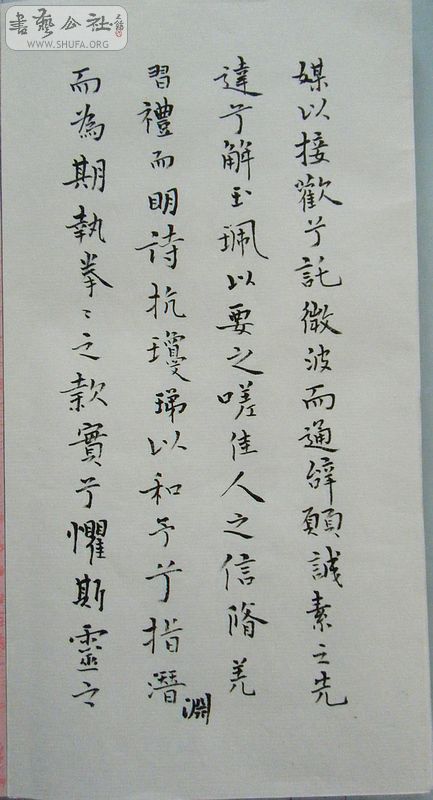 書藝公社
WWW.SHUFA.ORG
媒以接歡兮託微波而通辭願誠素之先
達兮解玉珮以要之嗟佳人之信脩羌
習禮而明詩抗瓊珶以和予兮指潛淵
而為期執拳々之款實兮懼斯靈之